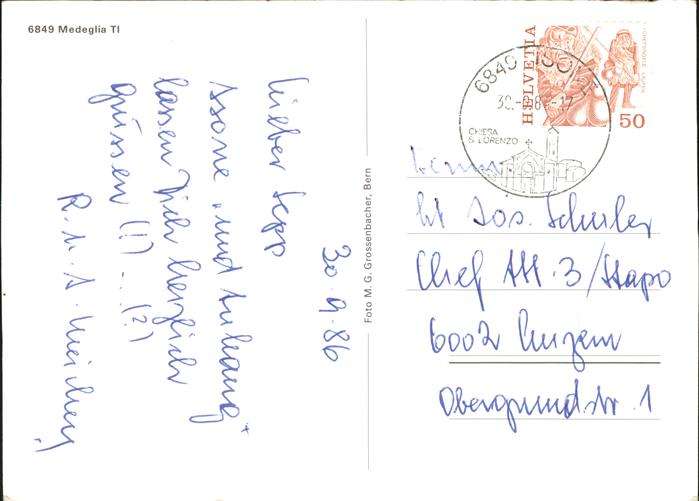 6849 Medeglia TI
30.9.86
Lieber Sepp
Isone "und Anhang"
lassen Dich herzlich
grüssen (!)...(?)
R. u. S.
Foto M. G. Grossenbacher, Bern
6849 ISONE
30.-9.86.-17
CHIESA
S. LORENZO
HELVETIA
50
Herrn
Jos. Schuler
Chef Abt. 3/Stapo
6002 Luzern
Obergrundstr. 1